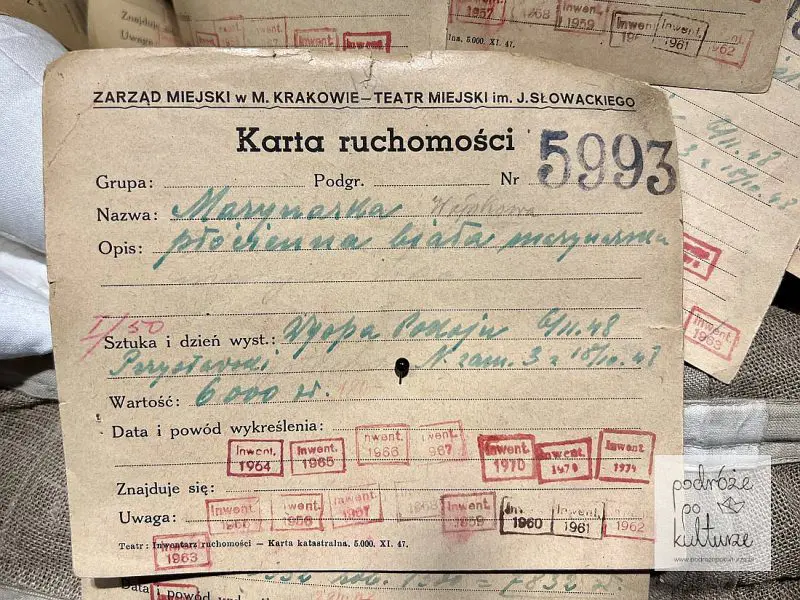 Znajduje
Uwaga
Inwent. Inwent.
1957 1958 1959 1961 1962
Inw. 5.000. XI. 47.
ZARZĄD MIEJSKI w M. KRAKOWIE – TEATR MIEJSKI im. J. SŁOWACKIEGO
Karta ruchomości
Grupa: Podgr. Nr 5993
Nazwa: Marynarka
Opis: płócienna biała marynarska
I/50
Sztuka i dzień wyst.: Wyspa Pokoju 6/11.48
N. zam. 3 z 18/10.48
Wartość: 6000 zł.
Data i powód wykreślenia:
Inwent. 1964 Inwent. 1965 Inwent. 1966 Inwent. 1967 Inwent. 1970 Inwent. Inwent. 1974
Znajduje się:
Uwaga: Inwent. 1956 Inwent. 1957 Inwent. 1959 Inwent. 1960 Inwent. 1961 Inwent. 1962
Inwent. 1963
Teatr: Inwentarz ruchomości – Karta katastralna. 5.000. XI. 47.
6/11.48
3 z 18/10.48
Inwent. 1963
Data i powód
podróże
po
kulturze